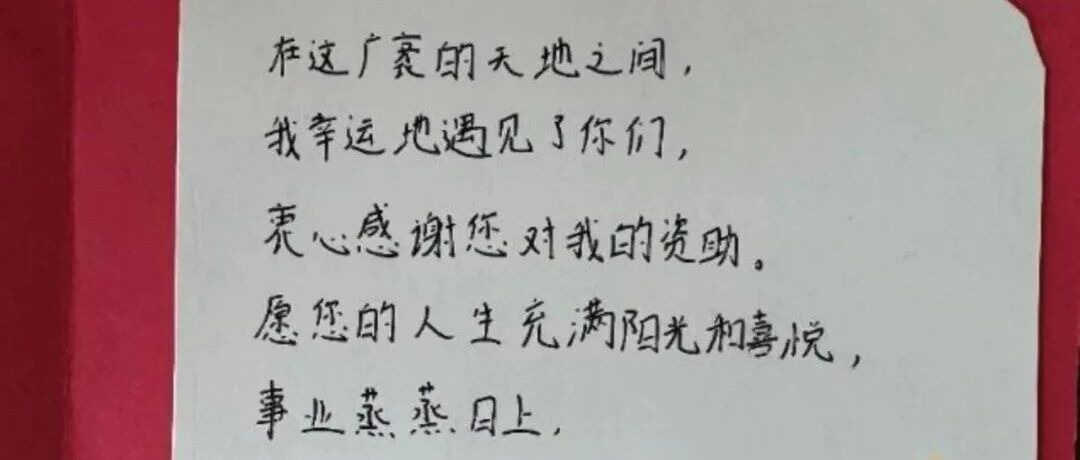 在这广袤的天地之间，
我幸运地遇见了你们，
衷心感谢您对我的资助。
愿您的人生充满阳光和喜悦，
事业蒸蒸日上，